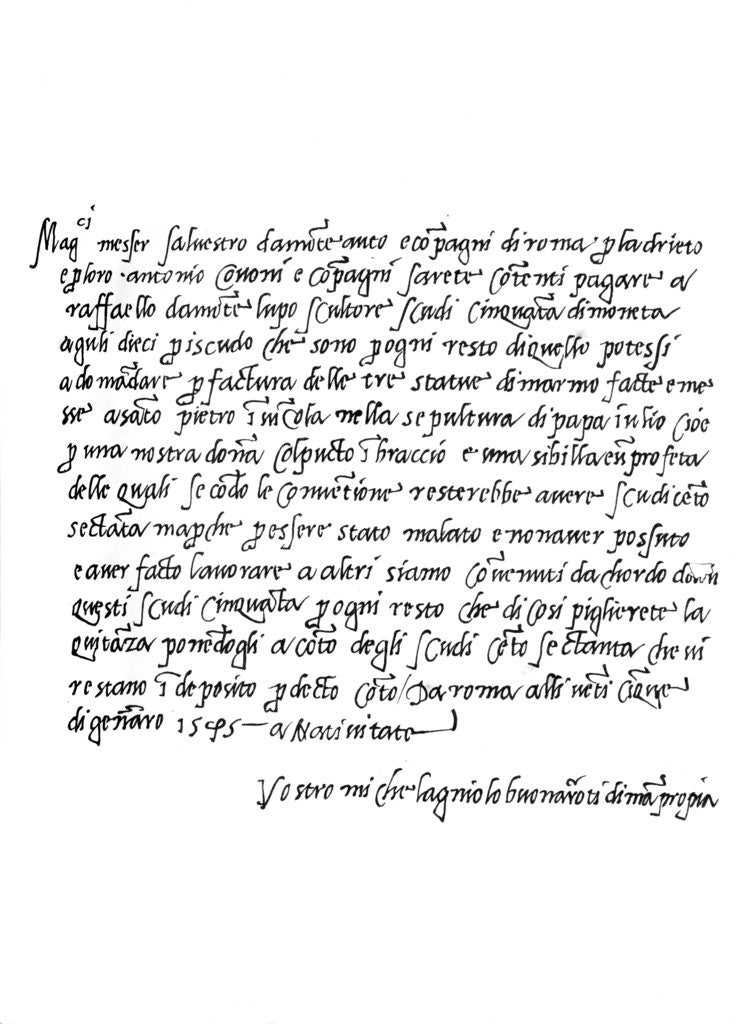 Mag^ci messer salvestro damō̄te auto e cōpagni di roma p ladrieto
e p loro · antonio Covoni e cōpagni sarete cōtenti pagare a
raffaello da mōte lupo scultore scudi cinquāta di moneta
a guli dieci p iscudo che sono p ogni resto di quello potessi
a domādare p factura delle tre statue di marmo facte e me
sse a sāto pietro ī vīcola nella sepultura di papa iulio cioè
p una nostra dōna col pucto ī braccio e una sibilla e ū profeta
delle quali secōdo le convētione resterebbe avere scudi cēto
sectāta ma p che p essere stato malato e non aver possuto
e aver facto lavorare a altri siamo cōvenuti dachordo
questi scudi cinquāta p ogni resto che di cosi piglierete la
quitāza ponēdogli a cōto degli scudi cēto sectanta che vi
restano ī deposito p decto cōto / Da roma alli vēti cīque
di gēnaro 1545 — a Nativitate
Vostro michelagniolo buonaroti di mā propia